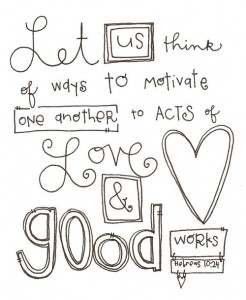 Let us think
of ways to motivate
one another to ACTS of
Love
&
good works
Hebrews 10:24